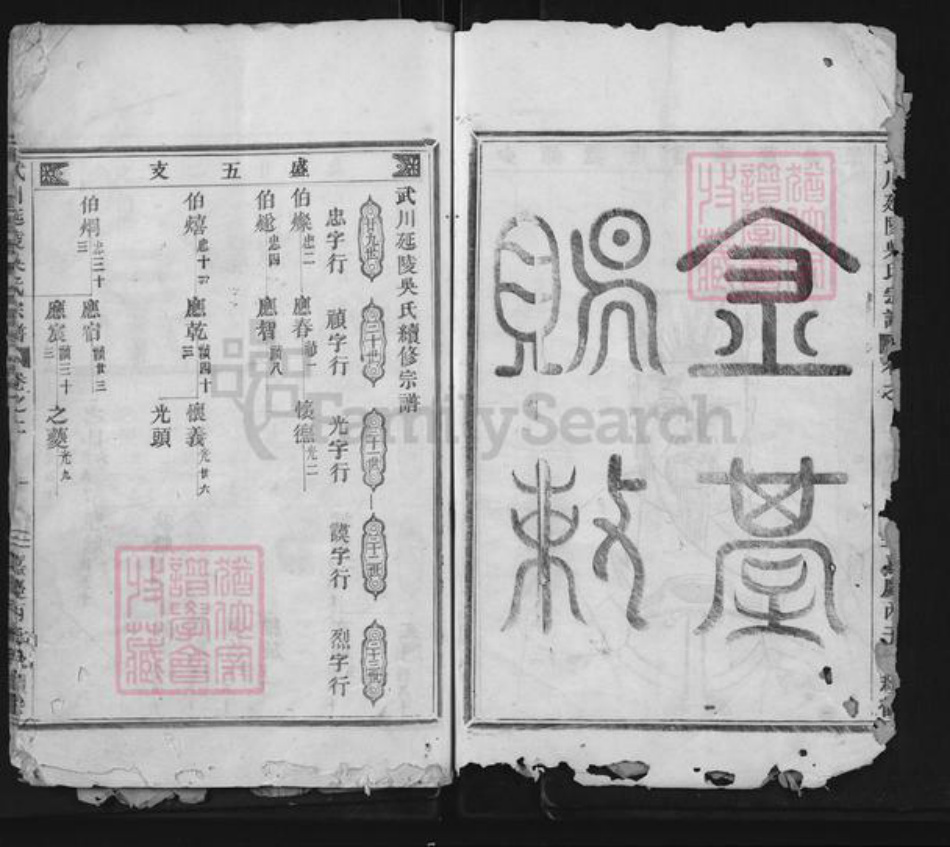 金臺
賜敕
FamilySearch
武川延陵吳氏續修宗譜
盛五支
廿九世
三十世
三十一世
三十二世
三十三世
忠字行
禎字行
光字行
謨字行
烈字行
伯燦忠二
應春禎一
懷德光二
伯熜忠四
應智禎八
伯熺忠十
應乾禎四十三
懷義光廿六
光頭
伯烔忠三十三
應宿禎廿三
應宸禎三十三
之夔光九